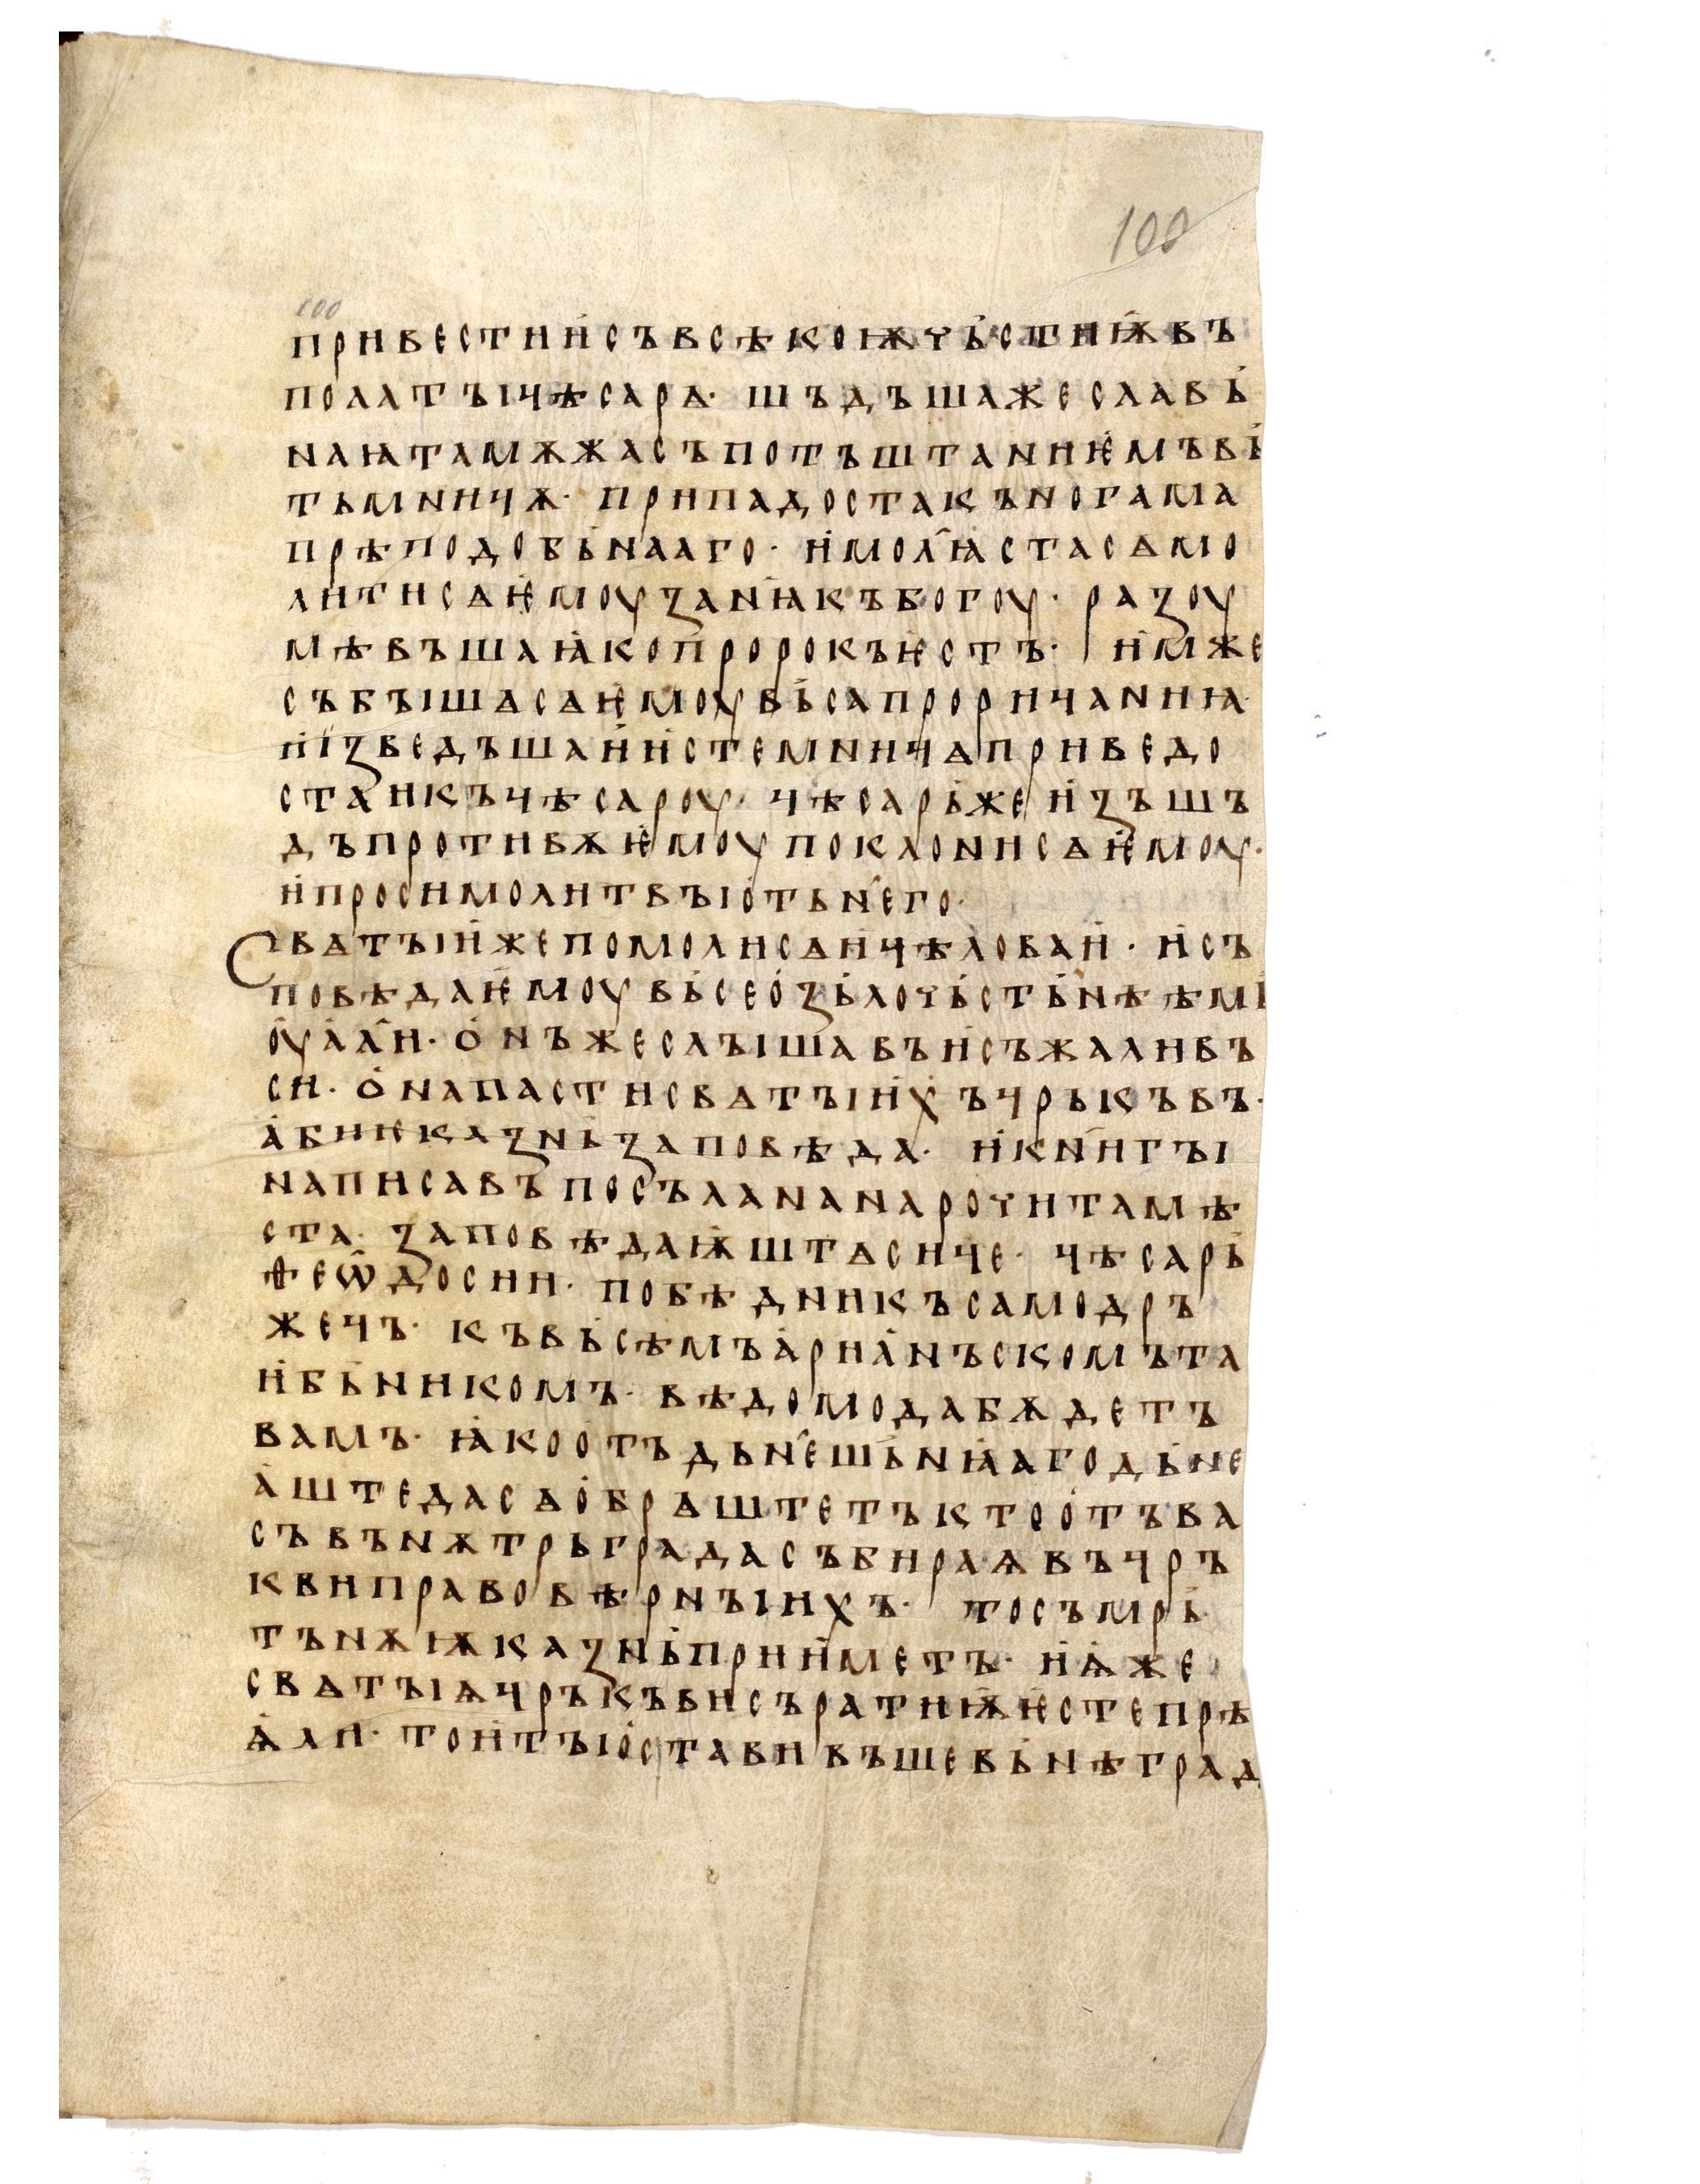 100
100
привести и҅ съ всѣкоѭ чь҅стиѭ҅ въ
полатꙑ цѣсарѧ· шъдъша же славь҅
наꙗ та мѫжа съ потъштаниѥ҅мъ вь҅
тьмницѫ· припадоста къ ногама
прѣподобь҅нааго· и҅ мол҄ꙗста сѧ мо
лити сѧ ѥ҅моу за н҄ꙗ къ богоу· разоу
мѣвъша ꙗ҅ко пророкъ ѥ҅стъ· и҅мже
събꙑшѧ сѧ ѥ҅моу вь҅са прорицаниꙗ·
и҅ їзведъша и҅ и҅с темницѧ приведо
ста и къ цѣсароу· цѣсарь҅ же и҅зъшъ
дъ противѫ ѥ҅моу поклони сѧ ѥ҅моу·
и҅ проси молитвꙑ отъ н҄его·
Свѧтꙑи҅ же помоли сѧ и҅ цѣлова и҅· и҅съ
повѣда ѥ҅моу вь҅се о҅ зь҅лочь҅сть҅нѣѣмь҅
оу҅а҅л҄и· о҅нъ же слꙑшавъ и҅ съжаливъ
си· о҅ напасти свѧтꙑи҅хъ црькъвъ·
а҅биѥ казнь҅ заповѣда· и҅ кн҄игꙑ
написавъ посъла на нарочита мѣ
ста· заповѣдаѭ҅штѧ сице· цѣсарь҅
ѳеѡ҅досии· побѣдникъ самодръ
жецъ· къ вь҅сѣмъ а҅риа҅нъскомъ та
и҅бь҅никомъ· вѣдомо да бѫдетъ
вамъ· ꙗ҅ко отъ дьн҄ешь҅нꙗ҅аго дь҅не
а҅ште да сѧ о҅брѧштетъ кто о҅тъ ва
съ вънѫтрь града събираѩ въ цръ
кви правовѣрнꙑихъ· то съмрь҅
тънѫѭ казнь҅ прии҅метъ· и҅ ѩ҅же
свѧтꙑѩ црькъви съ ратиѭ҅ ѥ҅сте прѣ
ѩ҅ли· то и҅ тꙑ о҅ставивъше вь҅нѣ град